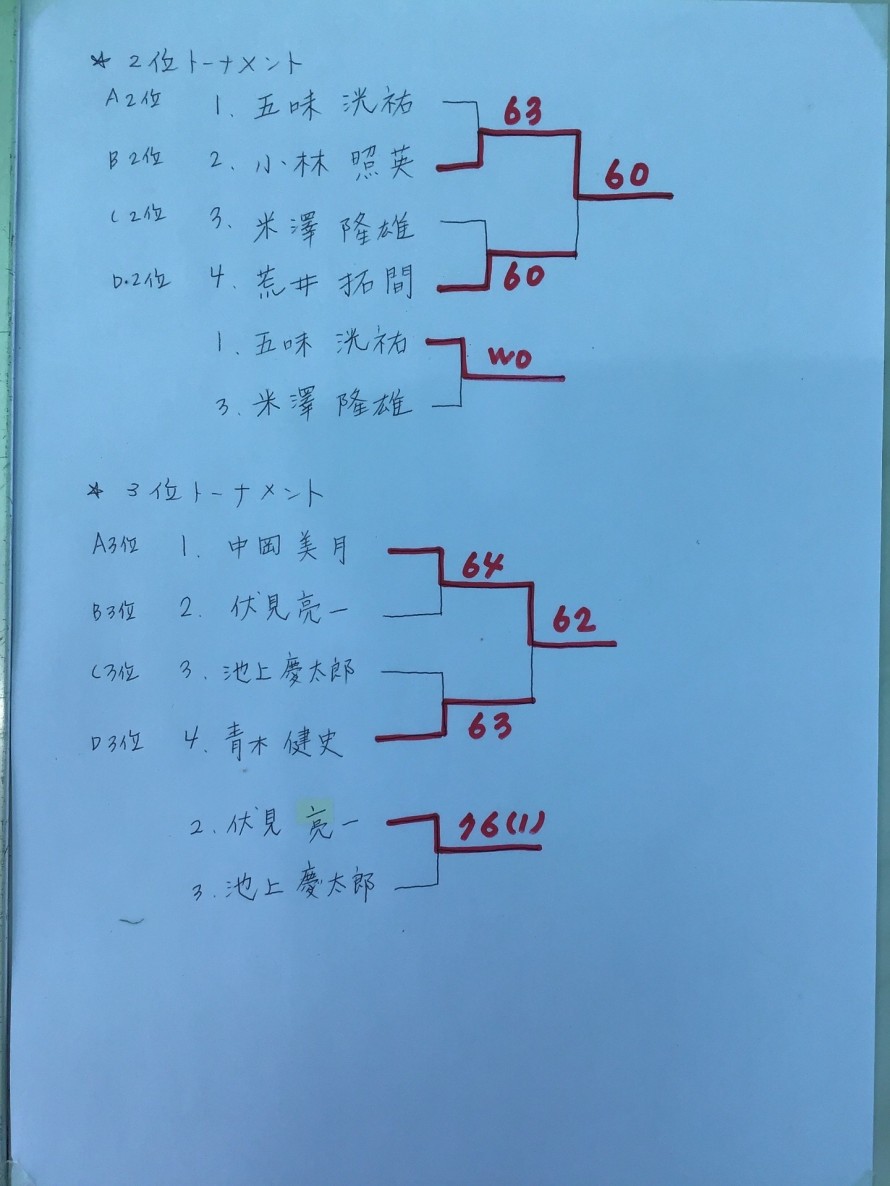 * 2位トーナメント
A2位 1. 五味 洸祐
63
B2位 2. 小林 照英
60
C2位 3. 米澤 隆雄
D.2位 4. 荒井 拓間
60
1. 五味 洸祐
WO
3. 米澤 隆雄
* 3位トーナメント
A3位 1. 中岡 美月
64
B3位 2. 伏見 亮一
62
C3位 3. 池上 慶太郎
63
D3位 4. 青木 健史
2. 伏見 亮一
76(1)
3. 池上 慶太郎